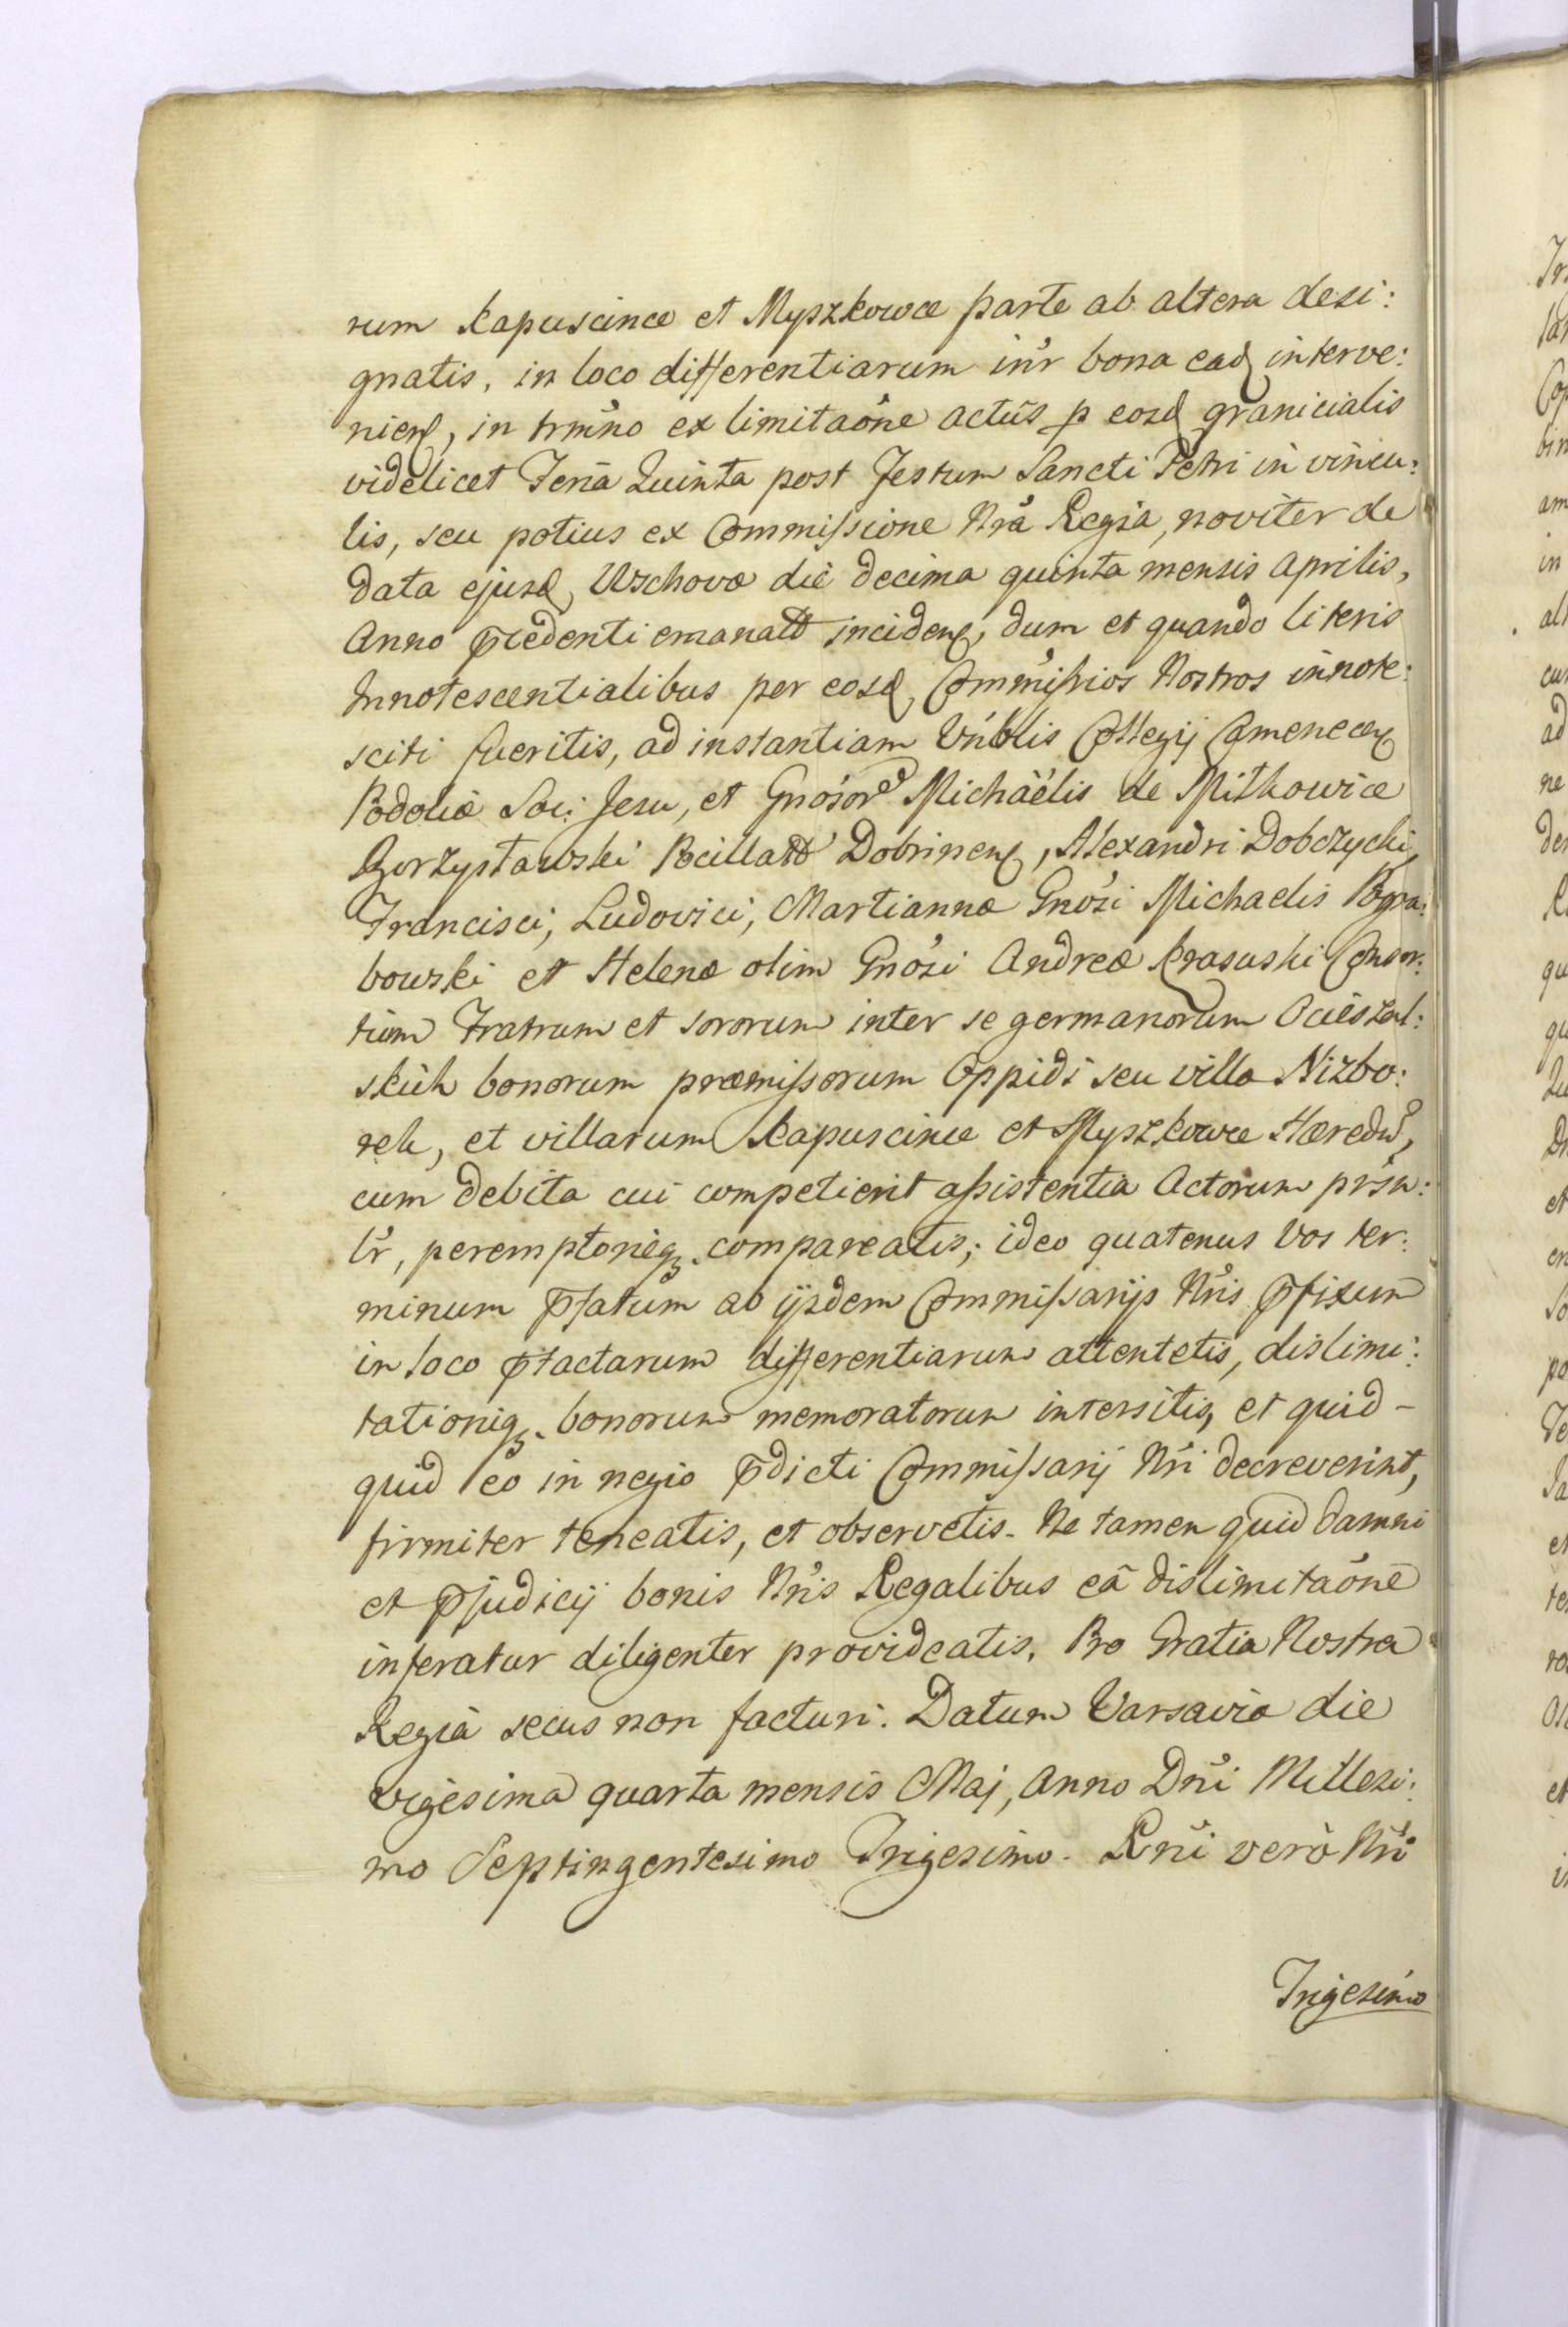 rum Kapuscince et Myszkowce parte ab altera desi:
gnatis, in loco differentiarum inr bona ead interve:
nien, in trmno ex limitaõne actûs p eosd granicialis
videlicet Feria Quinta post Festum Sancti Petri in vincu:
lis, seu potius ex Commissione Nrâ Regia, noviter de
data ejusd, Wschovæ die decima quinta mensis Aprilis,
Anno pcedenti emanatt inciden, dum et quando literis
Innotescentialibus per eosd, Commissrios Nostros innote:
sciti fueritis, ad instantiam Vnblis Collegij Camenecen
Podoliæ Soc: Jesu, et Gnosor Michaëlis de Mitkowice
Borzysławski Pocillatt Dobrinen, Alexandri Dobczycki,
Francisci, Ludovici, Martiannæ Gnosi Michaelis Pogra:
bowski et Helenæ olim Gnosi Andreæ Krasuski Consor:
tum Fratrum et sororum inter se germanorum Ocieszal:
skich bonorum præmissorum Oppidi seu villæ Nizbo:
rek, et villarum Kapuscince et Myszkowce Hæredu,
cum debita cui competierit assistentia Actorum prsn:
lr, peremptorieq. compareatis; ideo quatenus Vos ter:
minum pfatum ab ijsdem Commissarijs Nris pfixum
in loco ptactarum differentiarum attentetis, dislimi:
tationiq. bonorum memoratorum intersitis, et quid-
quid eo in negio pdicti Commissarij Nri decreverint,
firmiter teneatis, et observetis. Ne tamen quid damni
et pjudicij bonis Nris Regalibus eâ dislimitaõne
inferatur diligenter provideatis. Pro Gratia Nostra
Regiâ secus non facturi. Datum Varsaviæ die
vigesima quarta mensis Maj, Anno Dni Millesi:
mo Septingentesimo Trigesimo. Rni vero Nri
Trigesimo